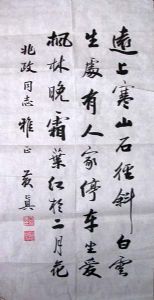 遠上寒山石徑斜白雲
生處有人家停车坐愛
楓林晚霜葉紅於二月花
兆政同志雅正 黃真